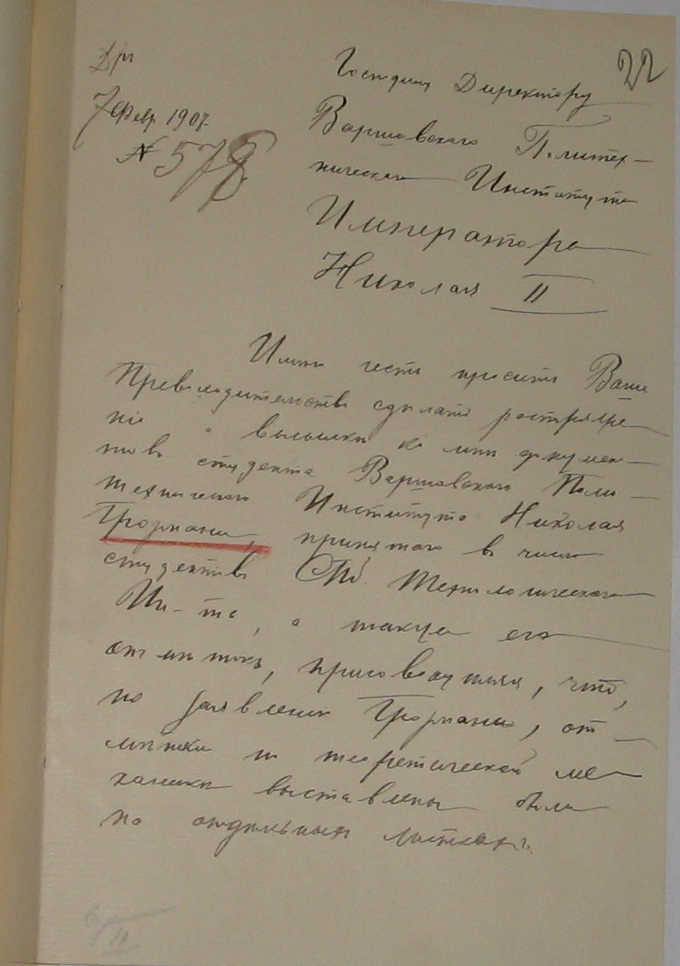 22
7 Февр 1907.
№ 578
Господину Директору
Варшавского Политех-
нического Института
Императора
Николая II
Имею честь просить Ваше
Превосходительство сделать распоряже
ніе о высылке ко мне докумен-
тов студента Варшавского Поли-
технического Института Николая
принятого в число
студентов СПб. Технологического
Ин-та, а также его
отметок, присовокупляя, что,
по заявлению от-
метки по теоретической ме
ханике выставлены были
по отдельным листкам.